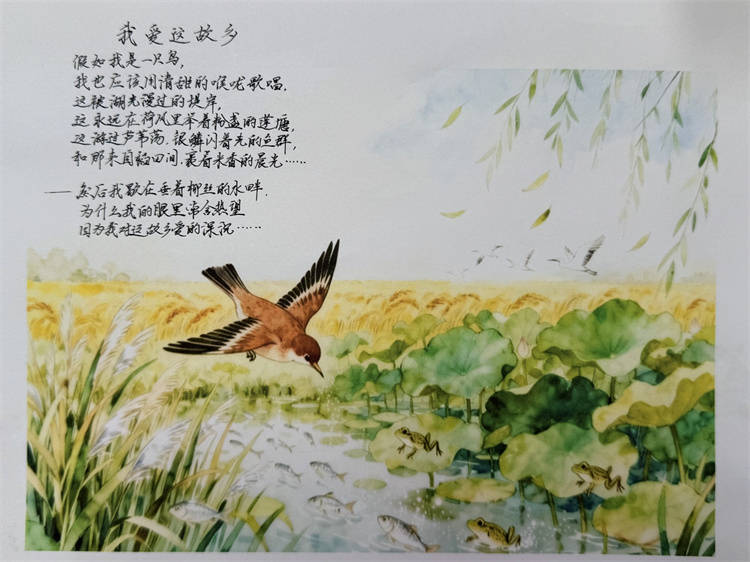 我爱这故乡
假如我是一只鸟,
我也应该用清甜的喉咙歌唱,
这被湖光漫过的堤岸,
这永远在荷风里举着粉盏的莲塘,
这游过芦苇荡、银鳞闪着光的鱼群,
和那来自稻田间,裹着米香的晨光……
——然后我歇在垂着柳丝的水畔.
为什么我的眼里常含热望
因为我对这故乡爱的深沉……